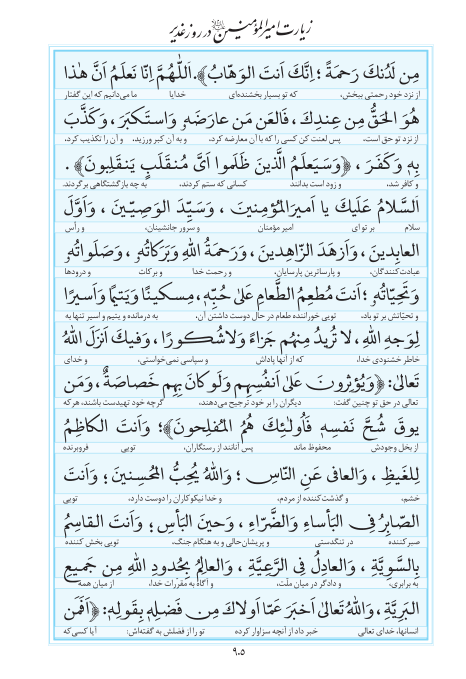 زیارت امیرالمؤمنین در روز غدیر
مِن لَدُنكَ رَحمَةً ؛ اِنَّكَ اَنتَ الوَهّابُ﴾. اَللّٰهُمَّ اِنّا نَعلَمُ اَنَّ هٰذا
از نزد خود رحمتی ببخش، که تو بسیار بخشنده‌ای خدایا ما می‌دانیم که این گفتار
هُوَ الحَقُّ مِن عِندِكَ ، فَالعَن مَن عارَضَهُ وَاستَكبَرَ ، وَكَذَّبَ
از نزد تو حق است، پس لعنت کن کسی را که با آن معارضه کرد، و به آن کبر ورزید، و آن را تکذیب کرد،
بِهِ وَكَفَرَ ، ﴿وَسَيَعلَمُ الَّذينَ ظَلَموا اَىَّ مُنقَلَبٍ يَنقَلِبونَ﴾ .
و کافر شد، و زود است بدانند کسانی که ستم کردند، به چه بازگشتگاهی برگردند.
اَلسَّلامُ عَلَيكَ يا اَميرَالمُؤمِنينَ ، وَسَيِّدَ الوَصِيّينَ ، وَاَوَّلَ
سلام بر تو ای امیر مؤمنان و سرور جانشینان، و رأس
العابِدينَ ، وَاَزهَدَ الزّاهِدينَ ، وَرَحمَةُ اللهِ وَبَرَكاتُهُ ، وَصَلَواتُهُ
عبادت‌کنندگان، و پارساترین پارسایان، و رحمت خدا و برکات و درودها
وَتَحِيّاتُهُ ؛ اَنتَ مُطعِمُ الطَّعامِ عَلىٰ حُبِّهِ ، مِسكينًا وَيَتيمًا وَاَسيرًا
و تحیّاتش بر تو باد، تویی خوراننده طعام در حال دوست داشتن آن، به درمانده و یتیم و اسیر تنها به
لِوَجهِ اللهِ ، لا تُريدُ مِنهُم جَزاءً وَلا شُكورًا ، وَفيكَ اَنزَلَ اللهُ
خاطر خشنودی خدا، که از آنها پاداش و سپاسی نمی‌خواستی، و خدای
تَعالىٰ: ﴿وَيُؤثِرونَ عَلىٰ اَنفُسِهِم وَلَو كانَ بِهِم خَصاصَةٌ ، وَمَن
تعالی در حق تو چنین گفت: دیگران را بر خود ترجیح می‌دهند، گرچه خود تهیدست باشند، هر که
يوقَ شُحَّ نَفسِهِ فَاُولٰئِكَ هُمُ المُفلِحونَ﴾؛ وَاَنتَ الكاظِمُ
از بخل وجودش محفوظ ماند پس آنانند از رستگاران، تویی فروبرنده
لِلغَيظِ ، وَالعافى عَنِ النّاسِ ؛ وَاللهُ يُحِبُّ المُحسِنينَ ؛ وَاَنتَ
خشم، و گذشت‌کننده از مردم، و خدا نیکوکاران را دوست دارد، تویی
الصّابِرُ فِى البَأساءِ وَالضَّرّاءِ ، وَحينَ البَأسِ ؛ وَاَنتَ القاسِمُ
صبر کننده در تنگدستی و پریشان‌حالی و به هنگام جنگ. تویی بخش کننده
بِالسَّوِيَّةِ ، وَالعادِلُ فِى الرَّعِيَّةِ ، وَالعالِمُ بِحُدودِ اللهِ مِن جَميعِ
به برابری، و دادگر در میان ملّت، و آگاه به مقرّرات خدا، از میان همه
البَرِيَّةِ ، وَاللهُ تَعالىٰ اَخبَرَ عَمّا اَولاكَ مِن فَضلِهِ بِقَولِهِ: ﴿اَفَمَن
انسانها، خدای تعالی خبر داد از آنچه سزاوار کرده تو را از فضلش به گفته‌اش: آیا کسی که
۹۰۵